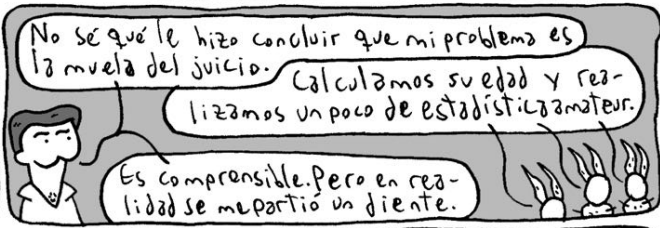 No sé qué le hizo concluir que mi problema es
la muela del juicio.
Calculamos su edad y rea-
lizamos un poco de estadística amateur.
Es comprensible. Pero en rea-
lidad se me partió un diente.